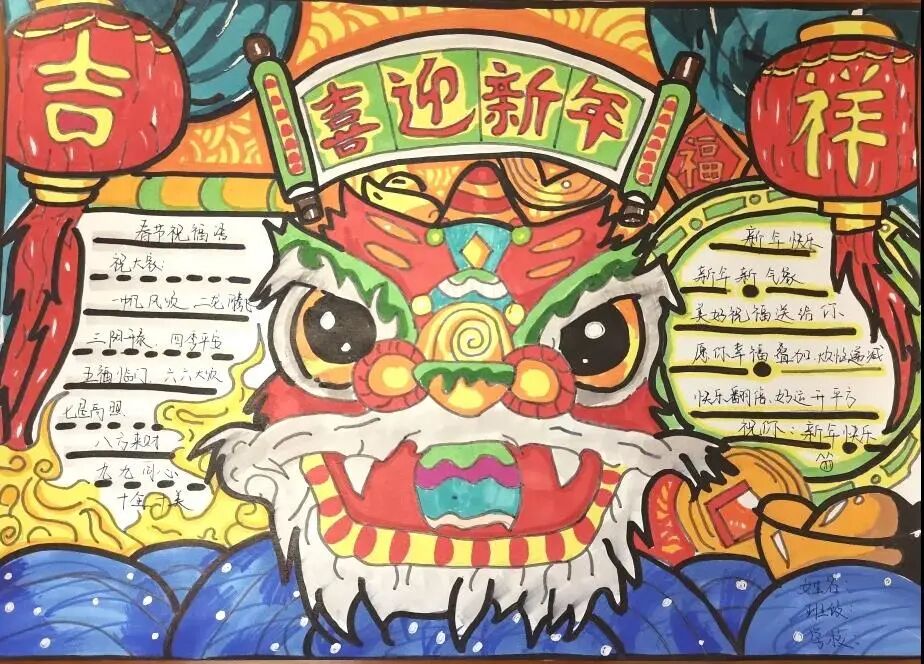 吉
喜迎新年
祥
福
春节祝福语
祝大家:
一帆风顺、二龙腾飞
三阳开泰、四季平安
五福临门、六六大顺
七星高照
八方来财
九九同心
十全十美
新年快乐
新年新气象
美好祝福送给你
愿你幸福叠加,烦恼递减
快乐翻倍、好运开平方
祝你:新年快乐
姓名:
班级:
学校: